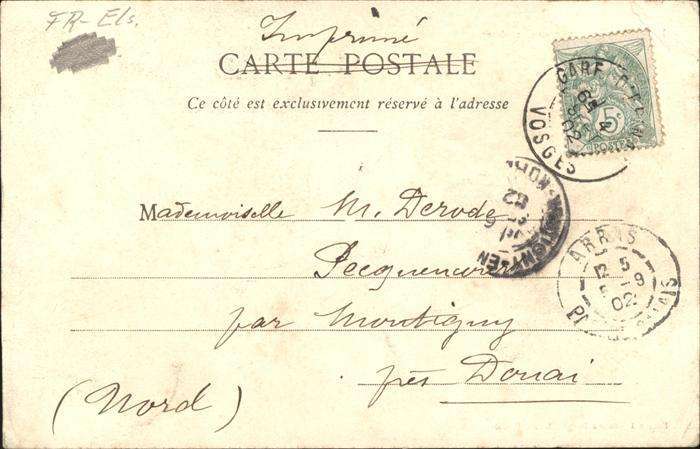 FR-Els.
Imprimé
CARTE POSTALE
Ce côté est exclusivement réservé à l'adresse
5c
POSTES
GARE D'EPINAL
VOSGES
02
Mademoiselle M. Derode
Pecquencourt
par Montigny
près Douai
(Nord)
ARRAS
5
9
02